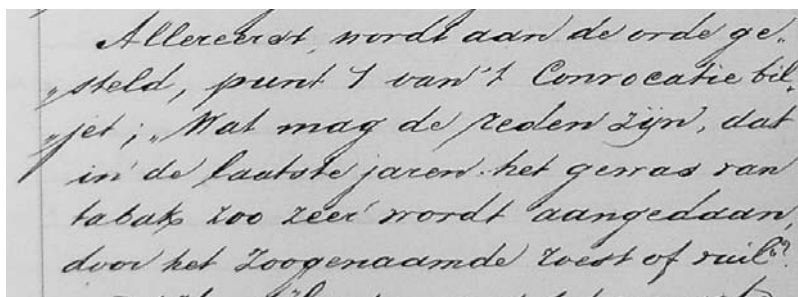 Allereerst, wordt aan de orde ge„
„steld, punt 1 van 't Convocatie bil„
„jet; „Wat mag de reden zijn, dat
in de laatste jaren het gewas van
tabak zoo zeer wordt aangedaan,
door het zoogenaamde roest of vuil"?